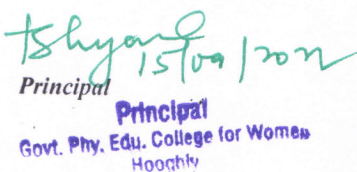 15/09/2022
Principal
Principal
Govt. Phy. Edu. College for Women
Hooghly